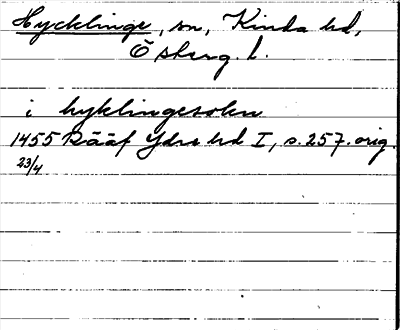 Hycklinge, sn, Kinda hd,
Östberg. l.
i hyklingesokn
1455 Rääf Ydre hd I, s. 257. orig.
23/4